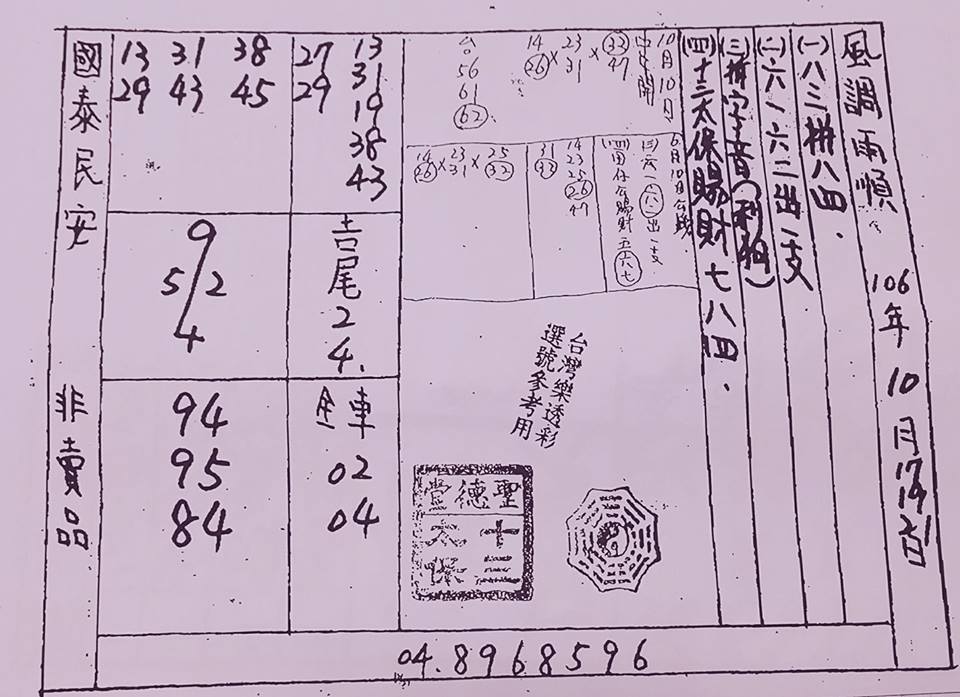 風調雨順
106年 10月 17 19 21日
(一)八三拼八四.
(二)六八、六二出一支
(三)拼字音(
(四)十三太保賜財七八四.
10月10日
中中開
14 26 × 23 31 × 33 47
台
56
61
62
6月10日公賤
(三)六一、六二出一支
賜財五六七
14
23
25
26
47
31
33
14 26 × 23 31 × 25 32
台灣樂透彩
選號參考用
聖德堂
十三
太保
27 13
29 31
19
38
43
吉尾
2
4.
全車
02
04
13 31 38
29 43 45
9
5/2
4
94
95
84
國泰民安
非賣品
04.8968596